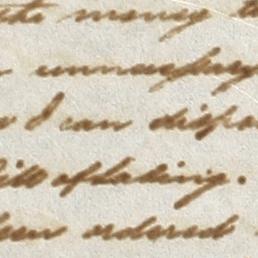 the money
unnecessary
I can dispo
Bill of lading.
been ordered